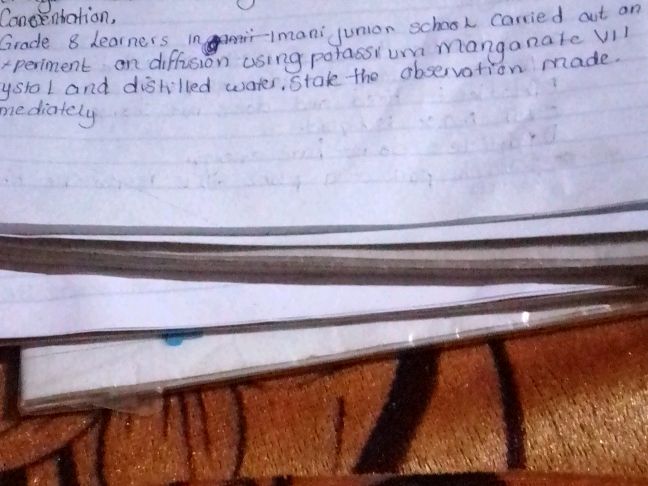 Concentration.
Grade 8 Learners in Imani junior school carried out an
xperiment on diffusion using potassium manganate VII
ystal and distilled water. State the observation made.
mediately